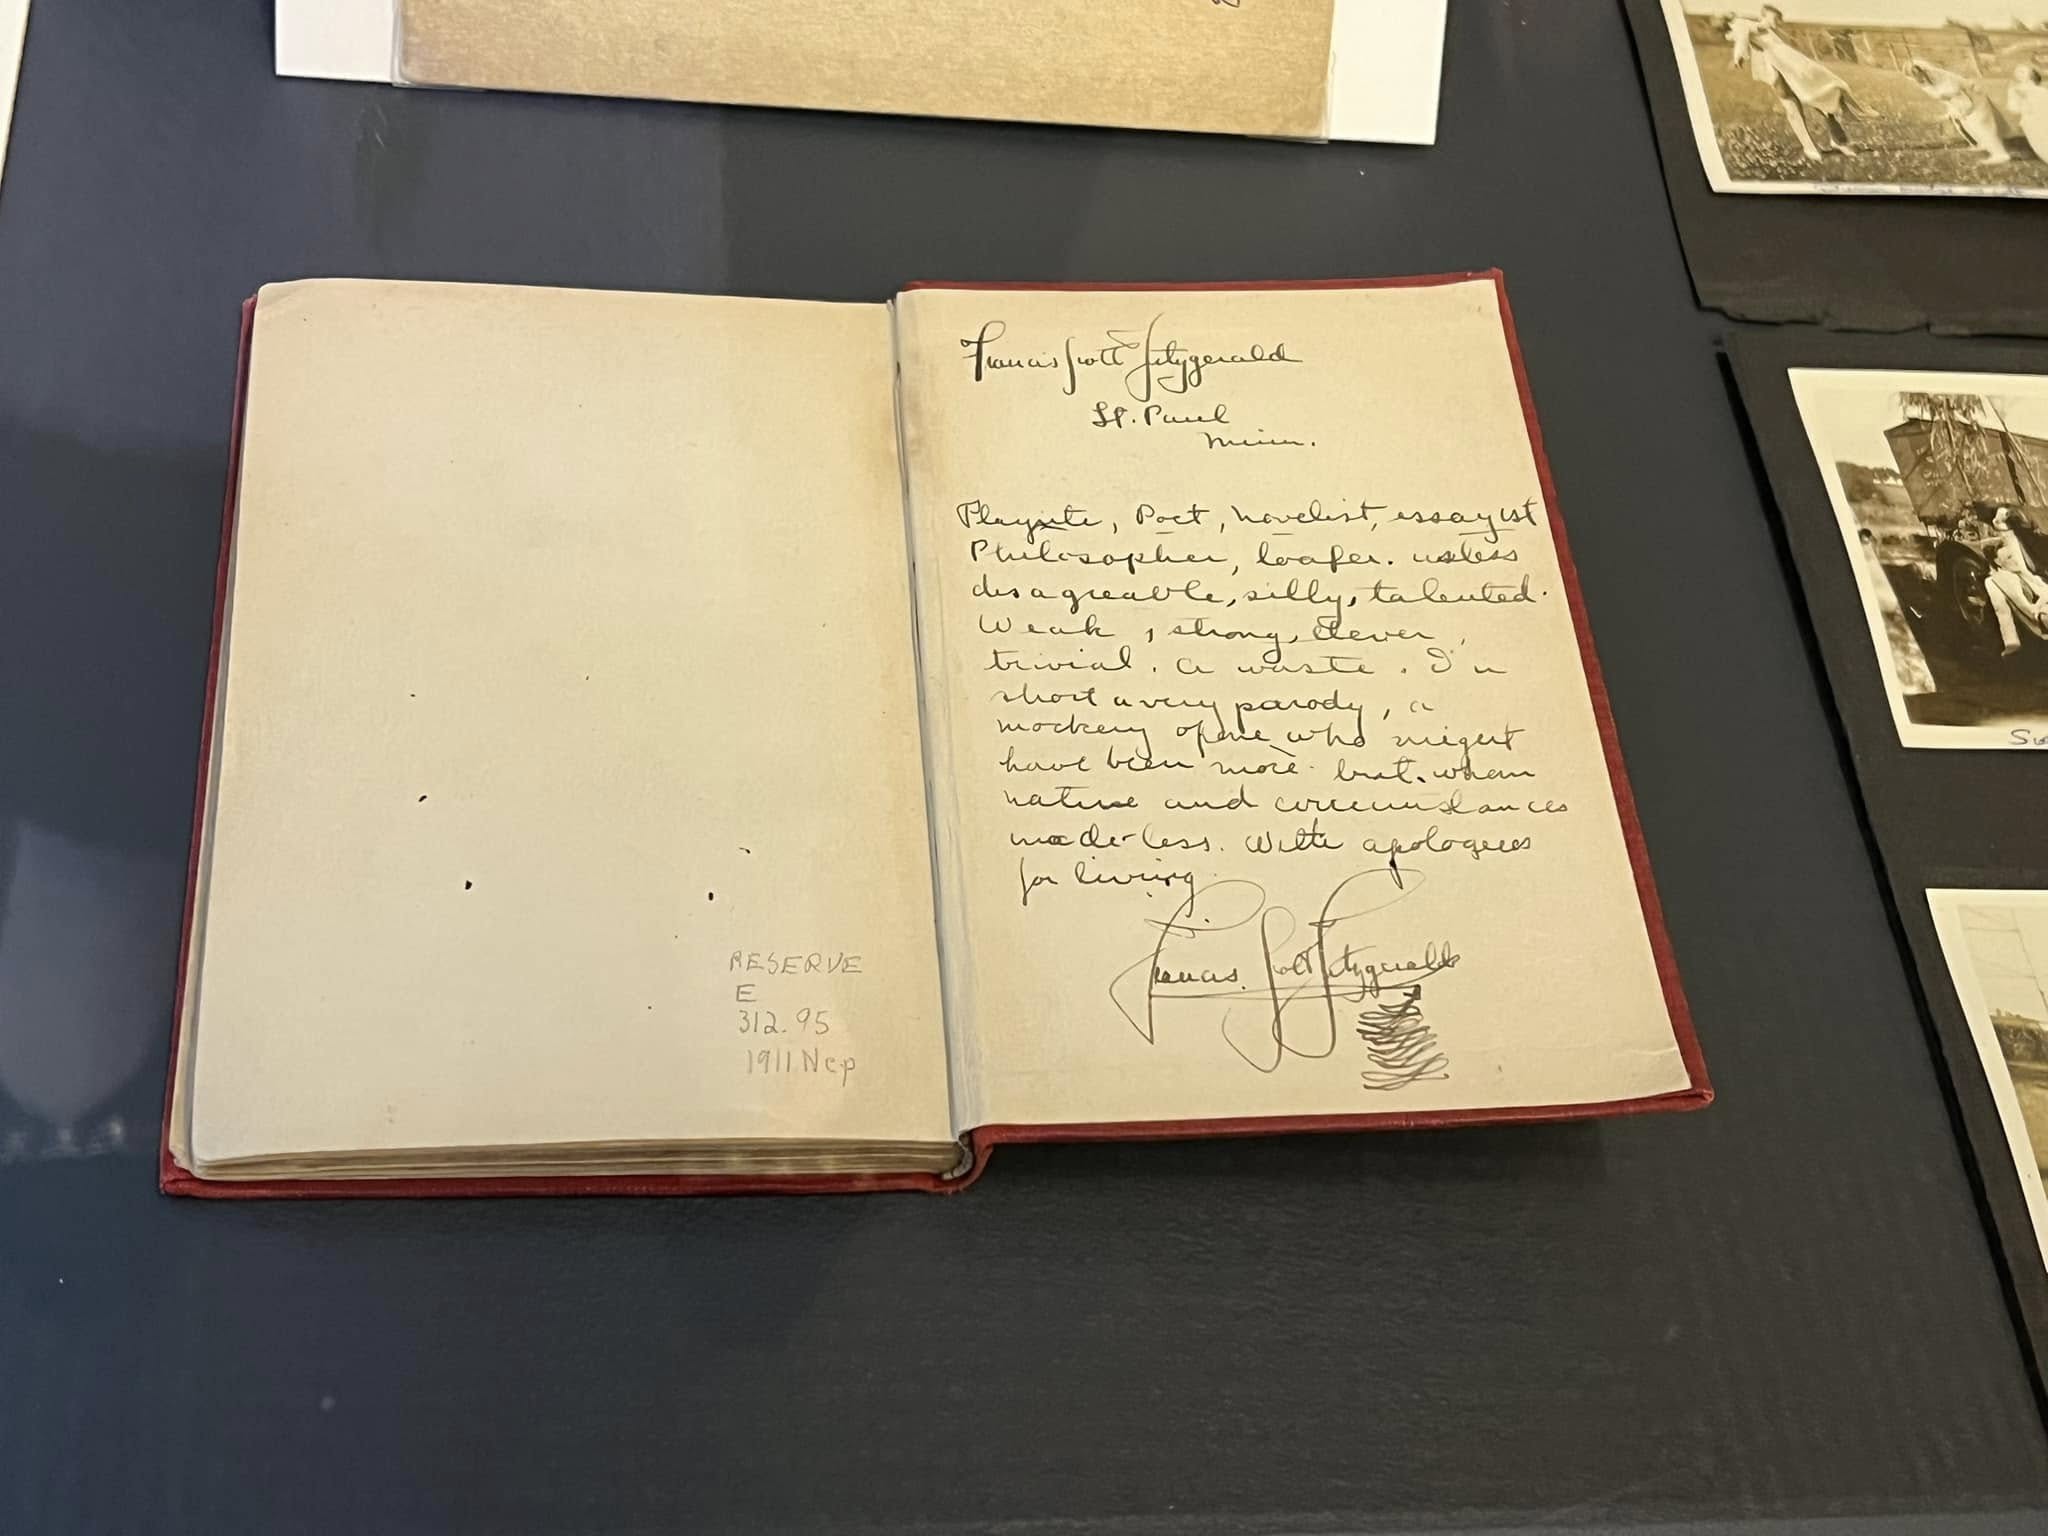 RESERVE
E
312.95
1911Ncp
Francis Scott Fitzgerald
St. Paul
Minn.
Playrite, Poet, Novelist, essayist
Philosopher, loafer. useless
disagreable, silly, talented.
Weak, strong, clever,
trivial. a waste. I'n
short a very parody, a
mockery of one who might
have been more. but whom
nature and circumstances
made less. With apologees
for living.
Francis Scott Fitzgerald